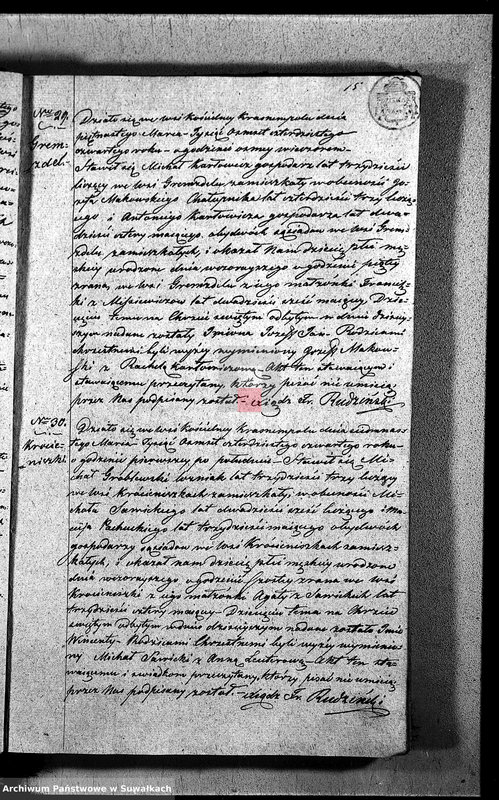 15
Nro 29.
Grem-
zdel.
Działo się we wsi kościelny Krasnympolu dnia
piętnastego Marca Tysiąc Osmset czterdziestego
czwartego roku o godzinie osmy wieczorem.
Stawił się Michał Karłowicz gospodarz lat trzydzieści
liczący we wsi Gremzdelu zamieszkały w obecności Jó-
zefa Makowskiego Chałupnika lat czterdzieści trzy liczą-
cego, i Antoniego gospodarza lat dwa-
dzieści cztery mającego, obydwóch sąsiadów we wsi Grem-
zdelu zamieszkałych, i okazał Nam dziecię płci mę-
skiej urodzone dnia wczorayszego o godzinie piątey
zrana, we wsi Gremzdelu z iego małżonki Francisz-
ki z lat dwadzieścia sześć maiącey, Dzie-
cięciu temu na Chrzcie świętym odbytym w dniu dzisiey-
szym nadane zostały Imiona Jozeff Jan. Rodzicami
chrzestnemi byli wyżey wymieniony Jozeff Makow-
ski z Rachelą Karłowiczową. Akt ten stawaiącym i
stawaiącemu przeczytany, którzy pisać nie umieią
przez Nas podpisany został. Xiądz Fr. Rudziński
Nro 30.
Krócie-
niszki
Działo się we wsi kościelny Krasnympolu dnia siedmnas-
tego Marca Tysiąc Osmset czterdziestego czwartego roku
o godzinie pierwszey po południu. Stawił się Mi-
chał Groblewski lat trzydzieści trzy liczący
we wsi zamieszkały, w obecności Mi-
chała Sawickiego lat dwadzieścia sześć liczącego i Ma-
cieja lat trzydzieści maiącego obydwóch
gospodarzy sąsiadów we wsi zamiesz-
kałych, i okazał nam dziecię płci męskiey urodzone
dnia wczorayszego o godzinie piątey zrana we wsi
z iego małżonki Agaty z Sawickich lat
trzydzieści cztery maiącey. Dziecięciu temu na Chrzcie
świętym odbytym w dniu dzisieyszym nadane zostało Imie
Wincenty. Rodzicami Chrzestnemi byli wyżey wymienio-
ny Michał Sawicki z Anną Akt ten sta-
waiącemu i świadkom przeczytany, którzy pisać nie umieią
przez Nas podpisany został. Xiądz Fr. Rudziński
Archiwum Państwowe w Suwałkach